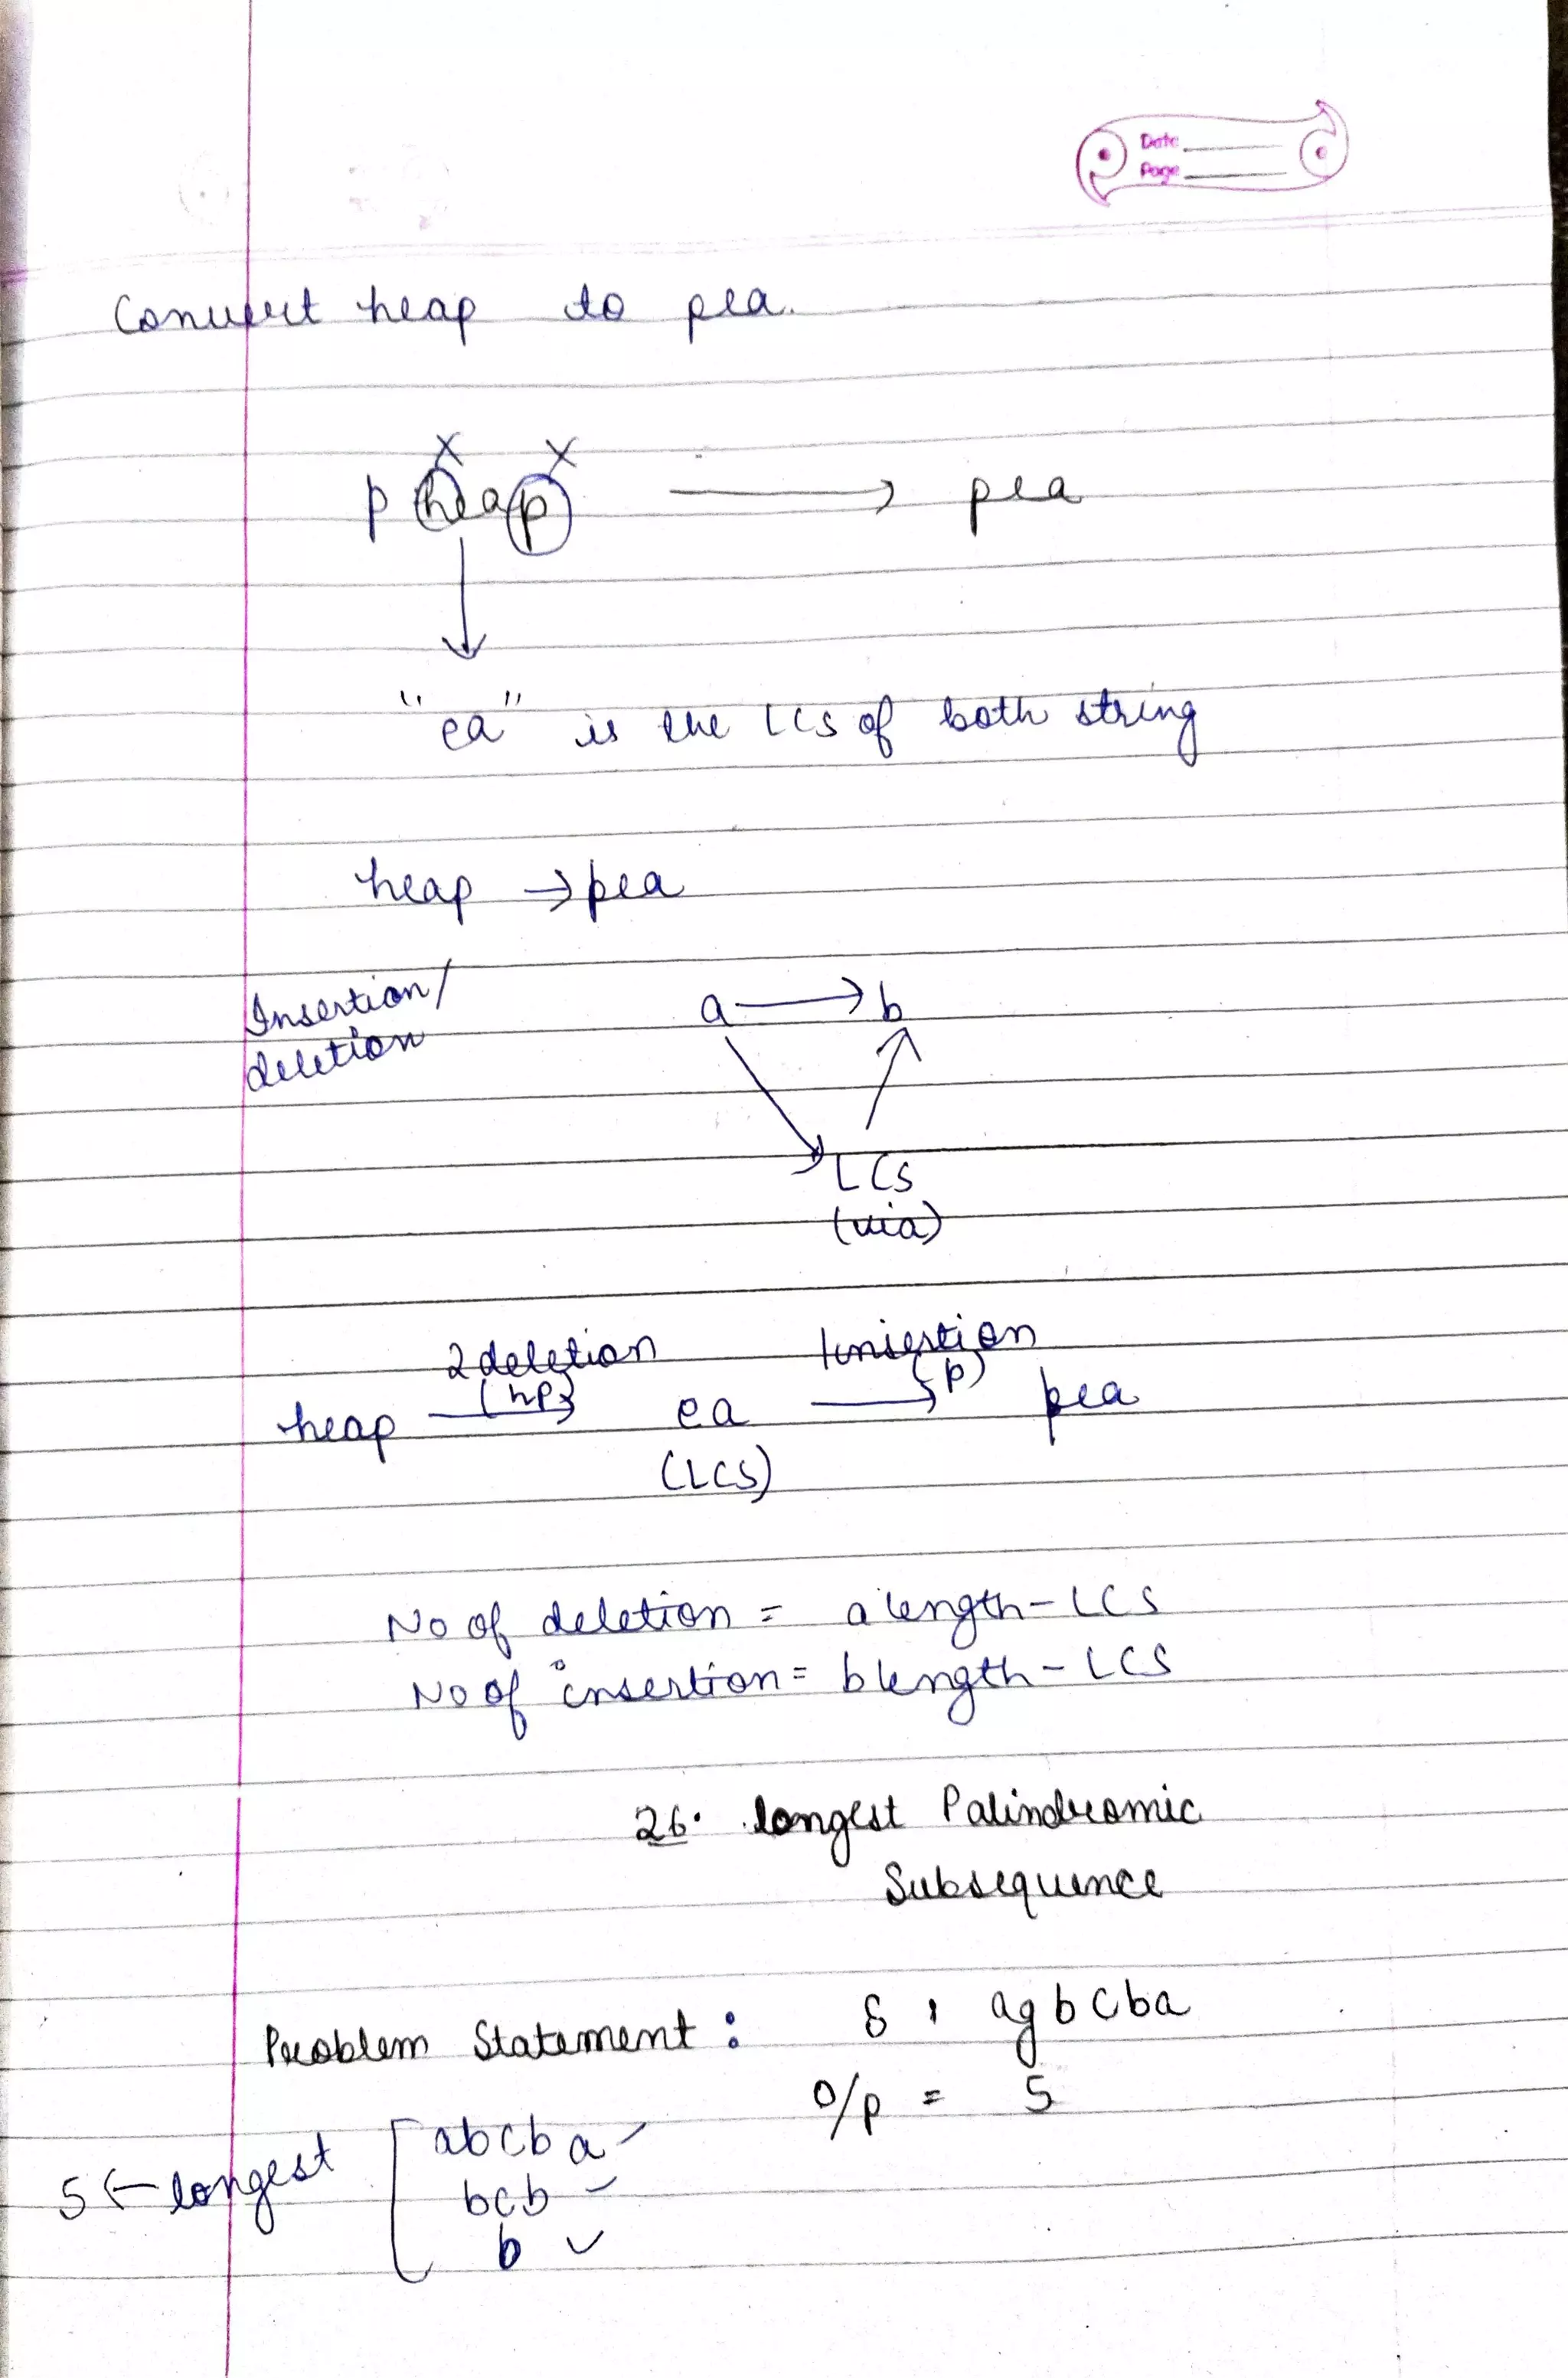 Date
Page
Convert heap to pea.
x x
p heap → pea
"ea" is the LCS of both string
heap → pea
Insertion/
deletion
a → b
LCS
(via)
2 deletion 1 insertion
(hp) (p)
heap → ea → pea
(LCS)
No of deletion = a length - LCS
No of insertion = b length - LCS
26. longest Palindromic
Subsequence
Problem Statement : S : agbcba
O/p = 5
5 ← longest
abcba ✓
bcb ✓
b ✓